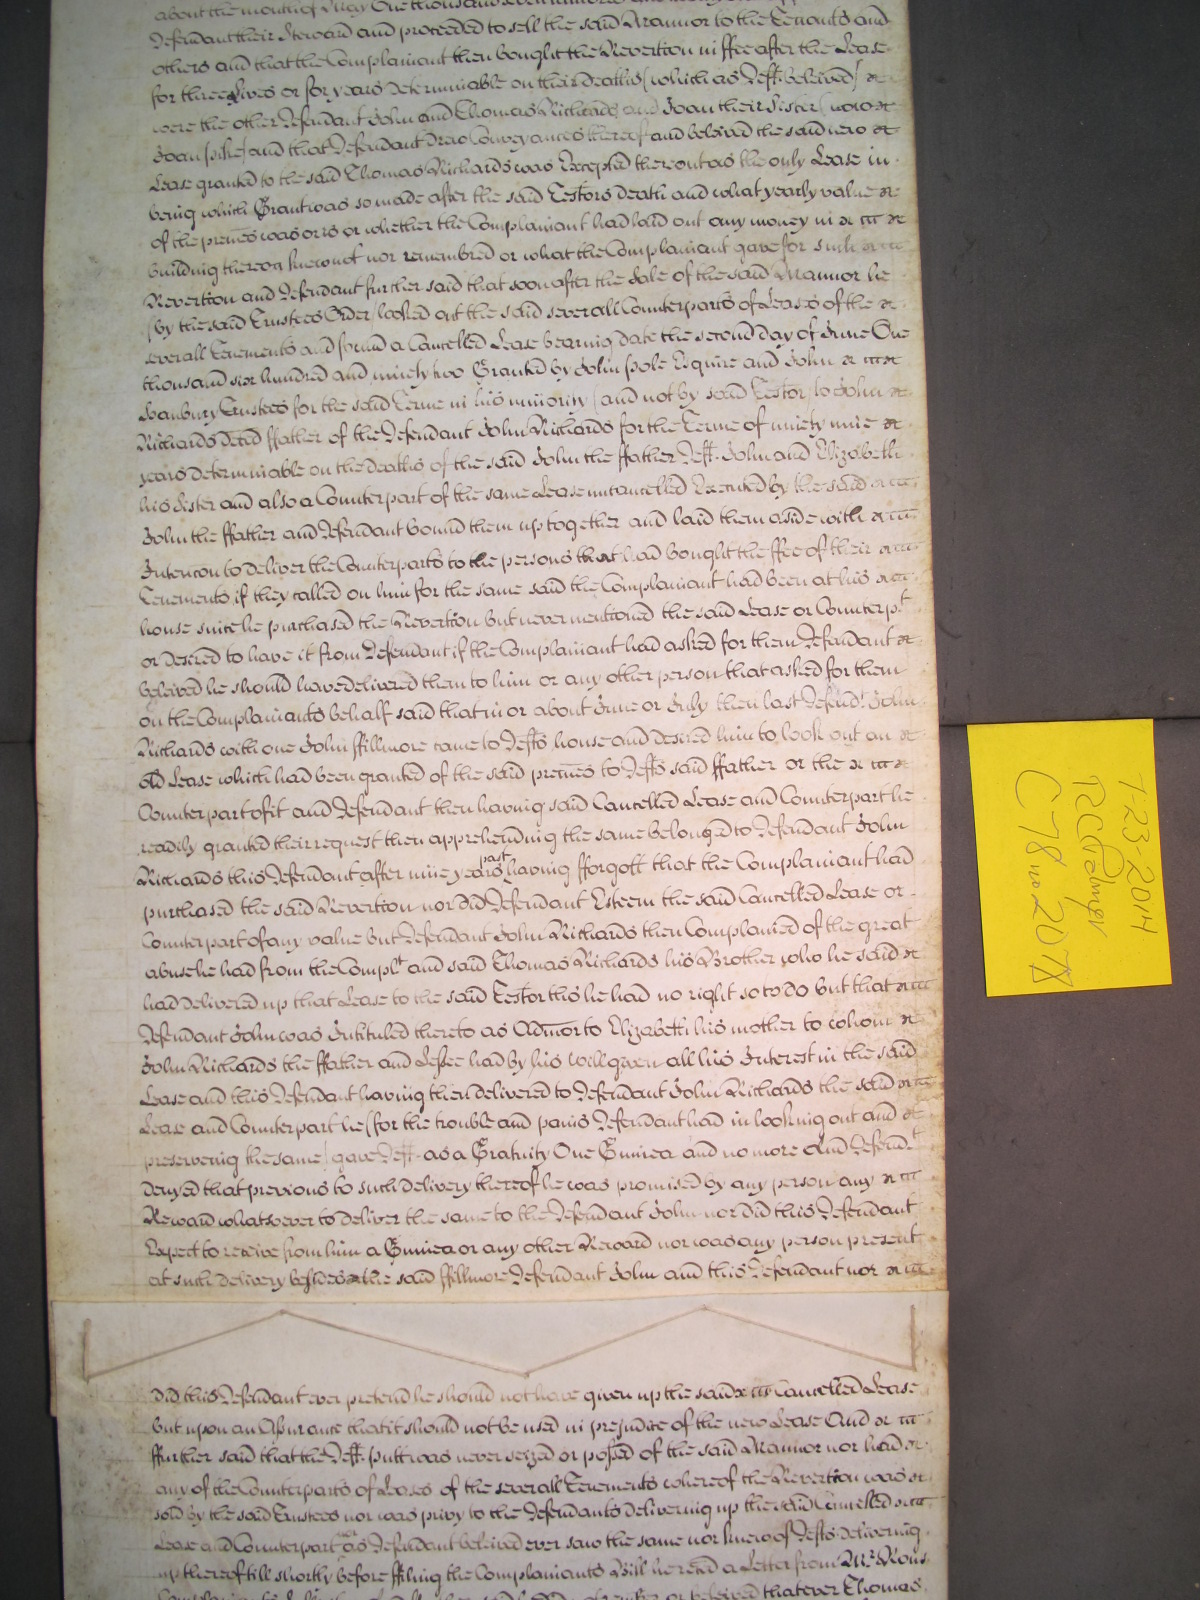 about the month of May One thousand seven hundred
Defendant their Steward and proceeded to sell the said Mannor to the Tenants and
others and that the Complainant then bought the Revertion in ffee after the Lease
for three Lives or for years determinable on their deaths (which as Deft. beleived) &
were the other Defendant John and Thomas Richards and Joan their Sister (now &
Joan Pike) and that Defendant drew Conveyances thereof and beleived the said new &
Lease granted to the said Thomas Richards was Excepted thereout as the only Lease in
being which Grant was so made after the said Testors death and what yearly value &
of the premes was or is or whether the Complainant had laid out any money in &
building thereon knew not nor remembred or what the Complainant gave for such &
Revertion and Defendant further said that soon after the Sale of the said Mannor he
(by the said Trustees Order) looked out the said severall Counterparts of Leases of the &
severall Tenements and found a Cancelled Lease bearing date the second day of June One
thousand six hundred and ninety two Granted by John Pole Esquire and John &
Hanbury Trustees for the said Terme in his minority (and not by said Testor) to John &
Richards decēd ffather of the Defendant John Richards for the Terme of ninety nine &
years determinable on the deaths of the said John the ffather Deft. John and Elizabeth
his Sister and also a Counterpart of the same Lease uncancelled Executed by the said &
John the ffather and Defendant bound them up together and laid them aside with &
Intencon to deliver the Counterparts to the persons that had bought the ffee of their &
Tenements if they called on him for the same said the Complainant had been at his &
house since he purchased the Revertion but never mentioned the said Lease or Counterpt
or desired to have it from Defendant if the Complainant had asked for them Defendant &
beleived he should have delivered them to him or any other person that asked for them
on the Complainants behalf said that in or about June or July then last Defendt John
Richards with one John ffillmore came to Defts house and desired him to look out an &
old Lease which had been granted of the said premes to Defts said ffather or the &
Counterpart of it and Defendant then having said Cancelled Lease and Counterpart he
readily granted their request then apprehending the same belonged to Defendant John
Richards this Defendant after nine years past having fforgott that the Complainant had
purchased the said Revertion nor did Defendant Esteem the said Cancelled Lease or
Counterpart of any value but Defendant John Richards then Complained of the great
abuse he had from the Complt and said Thomas Richards his Brother who he said &
had delivered up that Lease to the said Testor tho he had no right so to do but that &
Defendant John was Intituled thereto as Admor to Elizabeth his mother to whom &
John Richards the ffather and Lessee had by his Will given all his Interest in the said
Lease and this Defendant having then delivered to Defendant John Richards the said &
Lease and Counterpart he (for the trouble and pains Defendant had in looking out and &
preserveing the same) gave Deft. as a Gratuity One Guinea and no more And Defendt
denyed that previous to such delivery thereof he was promised by any person any &
Reward whatsoever to deliver the same to the Defendant John nor did this Defendant
Expect to receive from him a Guinea or any other Reward nor was any person present
at such delivery besides the said ffillmore Defendant John and this Defendant nor &
did this Defendant ever pretend he should not have given up the said & Cancelled Lease
but upon an Assurance that it should not be used in prejudice of the new Lease And &
ffurther said that the Deft. Putt was never seized or possed of the said Mannor nor had &
any of the Counterparts of Leases of the severall Tenements whereof the Revertion was &
sold by the said Trustees nor was privy to the Defendants delivering up the said Cancelled &
Lease and Counterpart nor as Defendant beleived ever saw the same nor knew of Defts delivering
up thereof till shortly before ffiling the Complainants Bill he read a Letter from Mr.
or beleived that ever Thomas
1-23-2014
C 78 no 2078